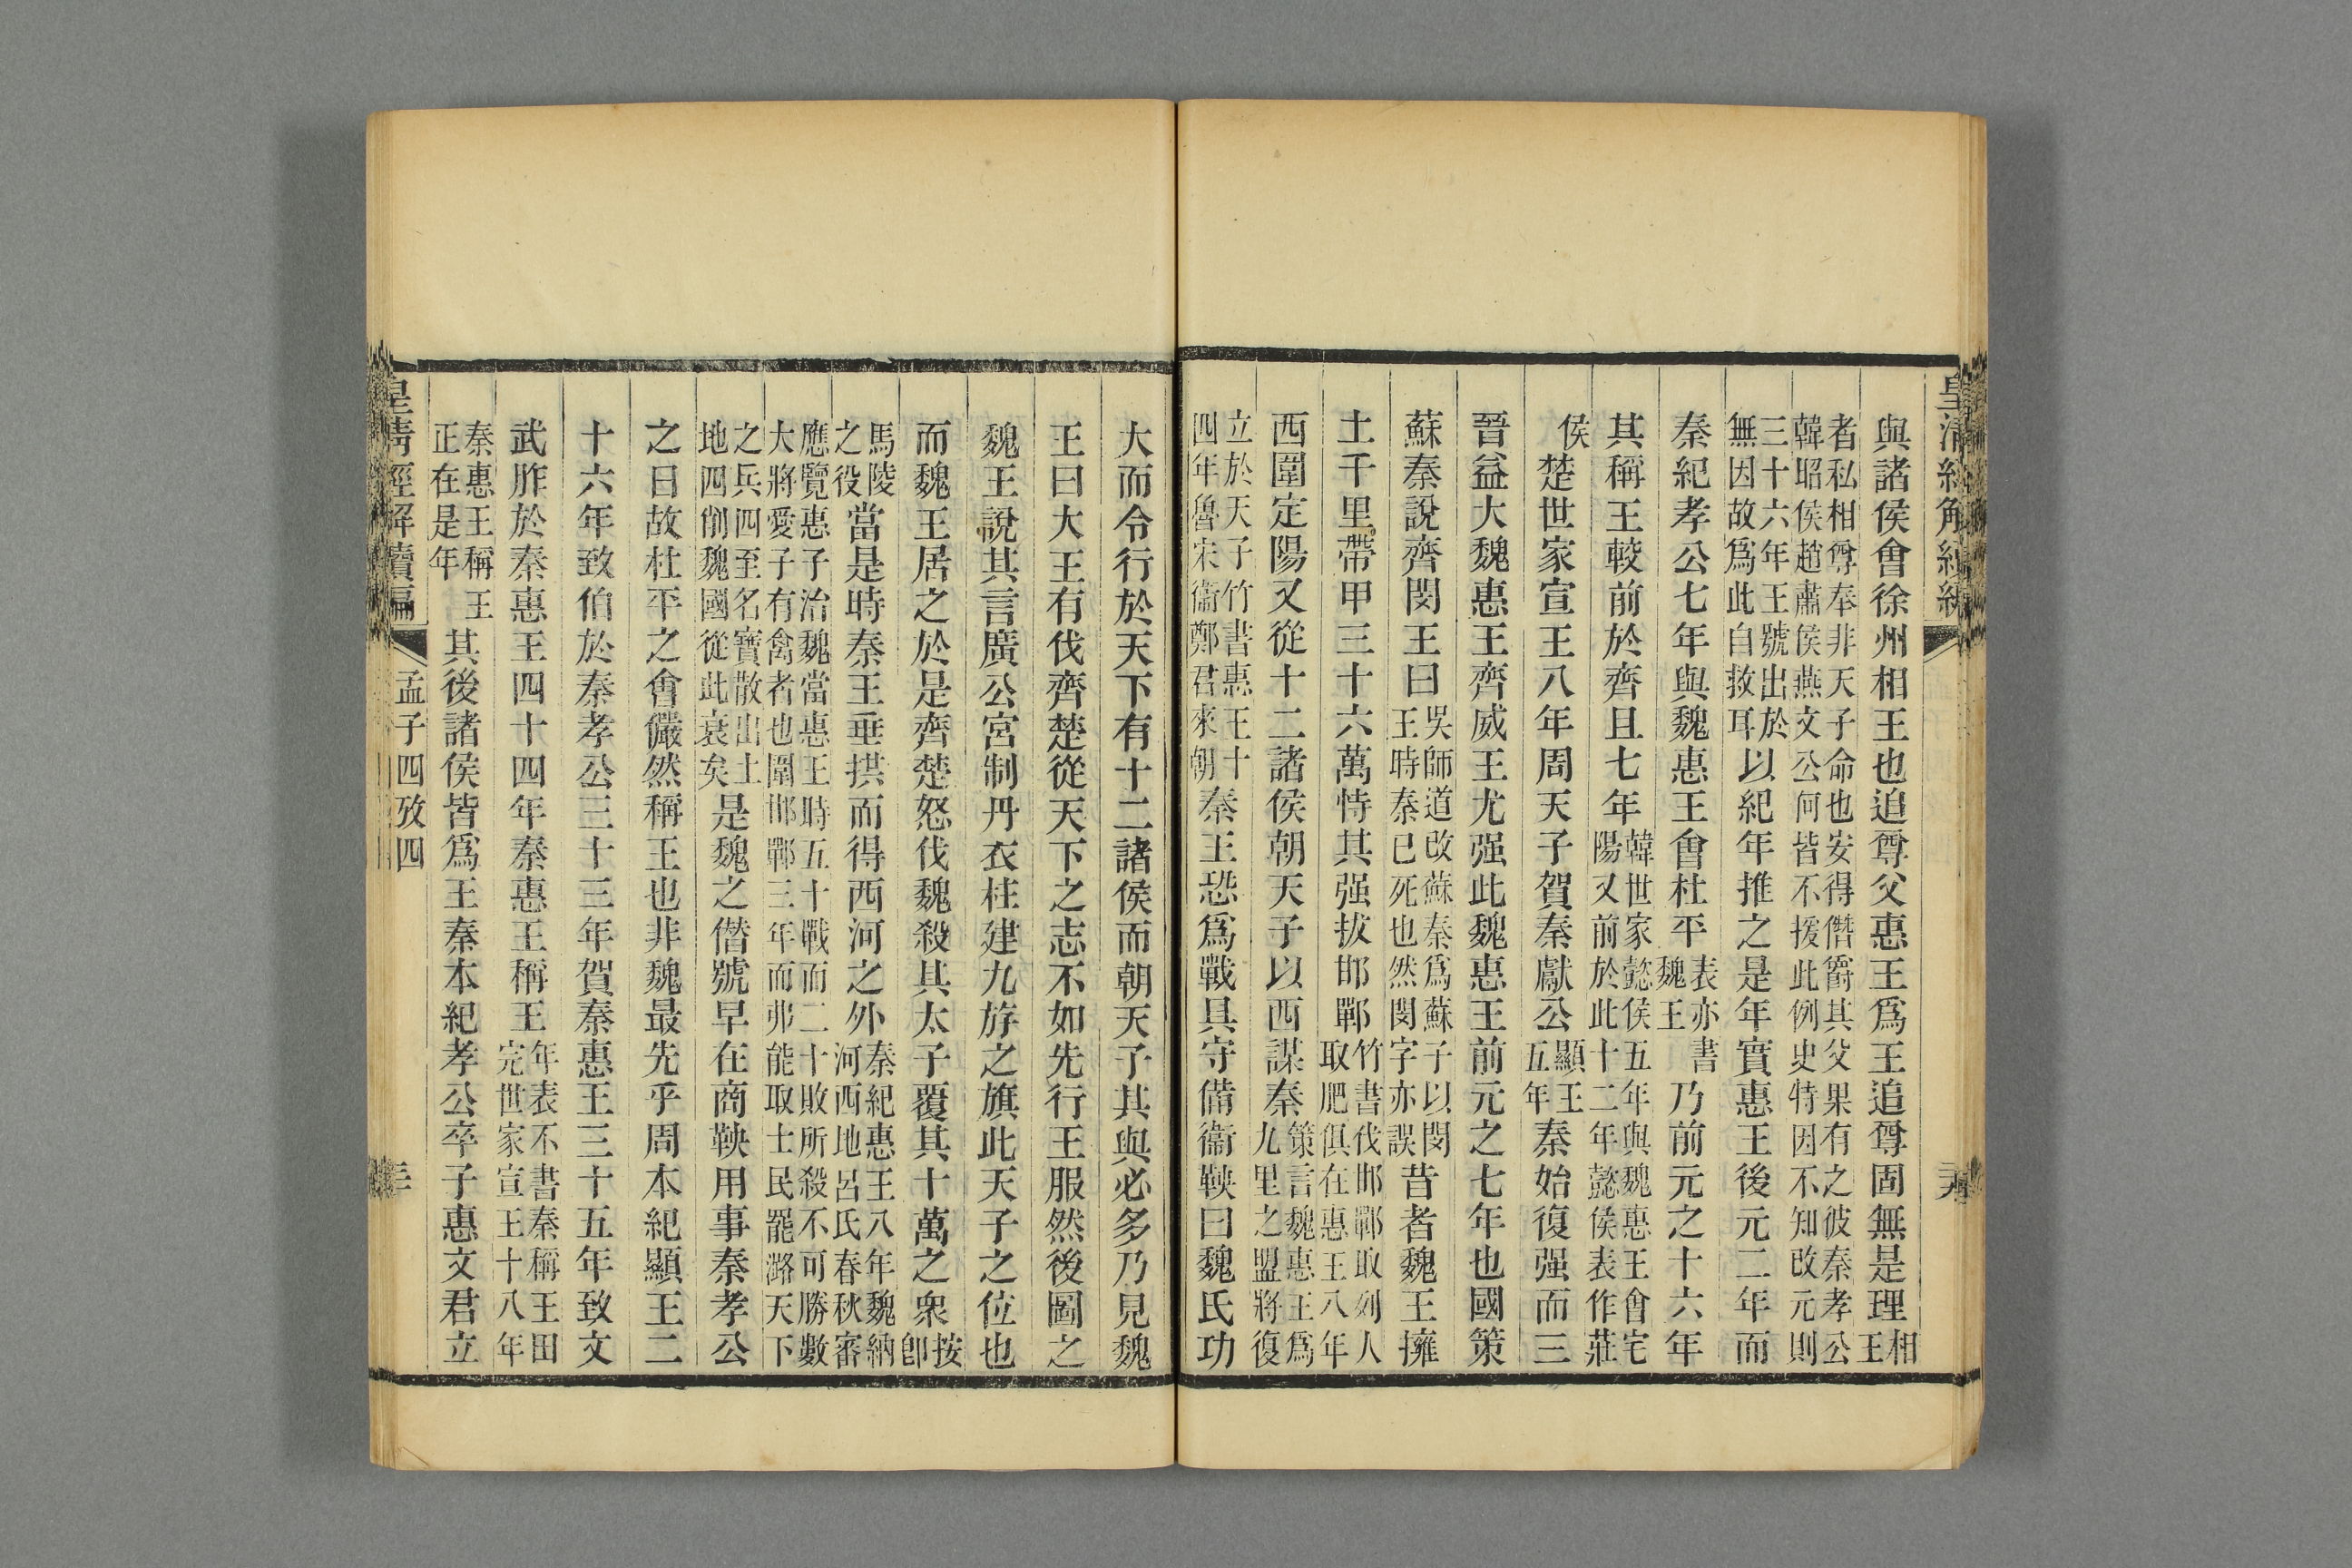 與諸侯會徐州相王也追尊父惠王爲王追尊固無是理相王
者私相尊奉非天子命也安得僭爵其父果有之彼秦孝公
韓昭侯趙肅侯燕文公何皆不援此例史特因不知改元則
三十六年王號出於
無因故爲此自救耳以紀年推之是年實惠王後元二年而
秦紀孝公七年與魏惠王會杜平表亦書魏王乃前元之十六年
其稱王較前於齊且七年韓世家懿侯五年與魏惠王會宅
陽又前於此十二年懿侯表作莊
侯楚世家宣王八年周天子賀秦獻公顯王五年秦始復强而三
晉益大魏惠王齊威王尤强此魏惠王前元之七年也國策
蘇秦說齊閔王曰吳師道改蘇秦爲蘇子以閔
王時秦已死也然閔字亦誤昔者魏王擁
土千里帶甲三十六萬恃其强拔邯鄲竹書伐邯鄲取列人
取肥俱在惠王八年
西圍定陽又從十二諸侯朝天子以西謀秦策言魏惠王爲
九里之盟將復
立於天子竹書惠王十
四年魯宋衞鄭君來朝秦王恐爲戰具守備衞鞅曰魏氏功
大而令行於天下有十二諸侯而朝天子其與必多乃見魏
王曰大王有伐齊楚從天下之志不如先行王服然後圖之
魏王說其言廣公宮制丹衣柱建九斿之旗此天子之位也
而魏王居之於是齊楚怒伐魏殺其太子覆其十萬之衆按卽
馬陵
之役當是時秦王垂拱而得西河之外秦紀惠王八年魏納
河西地呂氏春秋審
應覽惠子治魏當惠王時五十戰而二十敗所殺不可勝數
大將愛子有禽者也圍邯鄲三年而弗能取士民罷潞天下
之兵四至名寶散出土
地四削魏國從此衰矣是魏之僭號早在商鞅用事秦孝公
之日故杜平之會儼然稱王也非魏最先乎周本紀顯王二
十六年致伯於秦孝公三十三年賀秦惠王三十五年致文
武胙於秦惠王四十四年秦惠王稱王年表不書秦稱王田
完世家宣王十八年
秦惠王稱王
正在是年其後諸侯皆爲王秦本紀孝公卒子惠文君立
皇清經解續編
孟子四攷四